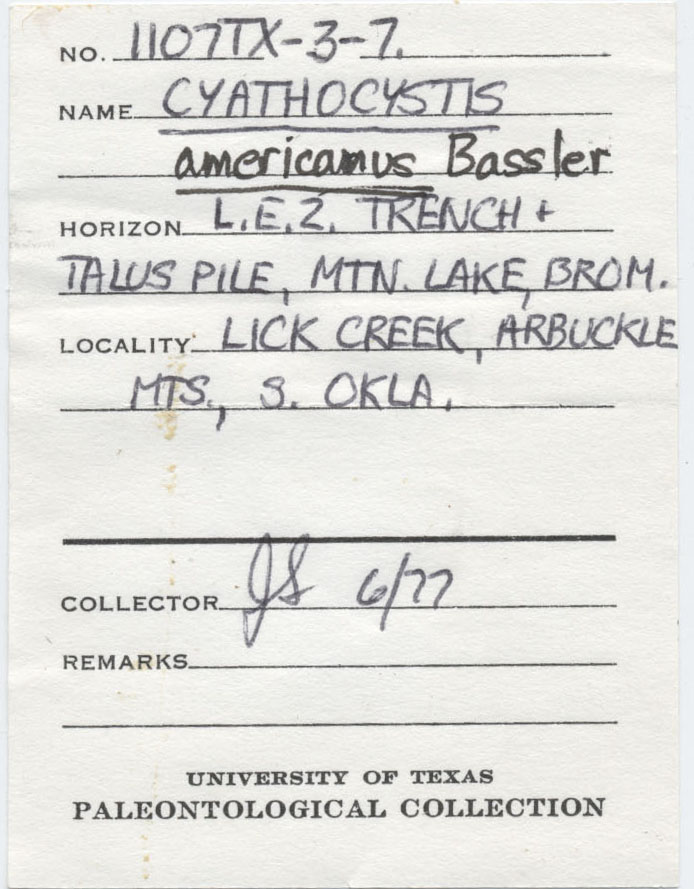 NO. 1107TX-3-7.
NAME CYATHOCYSTIS
americanus Bassler
HORIZON L.E.Z. TRENCH +
TALUS PILE, MTN. LAKE, BROM.
LOCALITY LICK CREEK, ARBUCKLE
MTS., S. OKLA.
COLLECTOR JS 6/77
REMARKS
UNIVERSITY OF TEXAS
PALEONTOLOGICAL COLLECTION